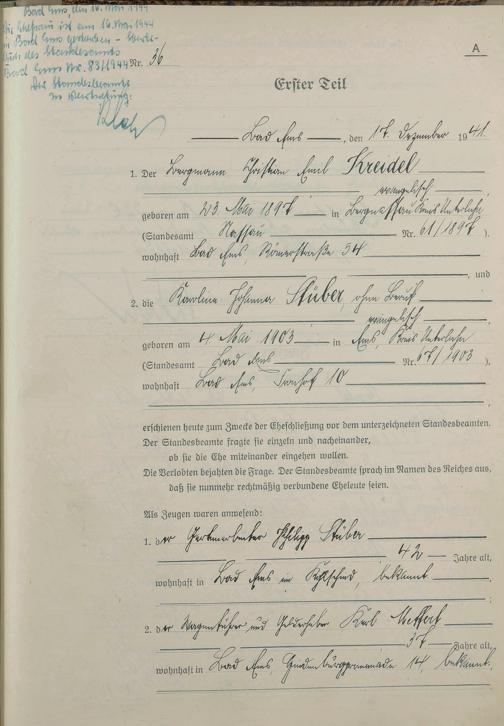 Bad Ems, den 16. Mai 1944
Die Ehefrau ist am 16. Mai 1944
in Bad Ems gestorben - Sterbe-
buch des Standesamts
Bad Ems Nr. 83/1944
Der Standesbeamte
In Vertretung:
Nr. 36
A
Erster Teil
Bad Ems, den 17. Dezember 1941.
1. Der Bergmann Christian Emil Kreidel
evangelisch
geboren am 23. Mai 1897 in Bergnassau Kreis Unterlahn
(Standesamt Nassau Nr. 61/1897 ).
wohnhaft Bad Ems, Römerstraße 54
, und
2. die Karoline Johanna Stüber, ohne Beruf
evangelisch
geboren am 4. Mai 1903 in Ems, Kreis Unterlahn
(Standesamt Bad Ems Nr. 67/1903 ),
wohnhaft Bad Ems, 10
erschienen heute zum Zwecke der Eheschließung vor dem unterzeichneten Standesbeamten.
Der Standesbeamte fragte sie einzeln und nacheinander,
ob sie die Ehe miteinander eingehen wollen.
Die Verlobten bejahten die Frage. Der Standesbeamte sprach im Namen des Reiches aus,
daß sie nunmehr rechtmäßig verbundene Eheleute seien.
Als Zeugen waren anwesend:
1. der Philipp Stüber
42 Jahre alt,
wohnhaft in Bad Ems im bekannt
2. der Wagenführer und Karl
37 Jahre alt,
wohnhaft in Bad Ems, 14, bekannt.